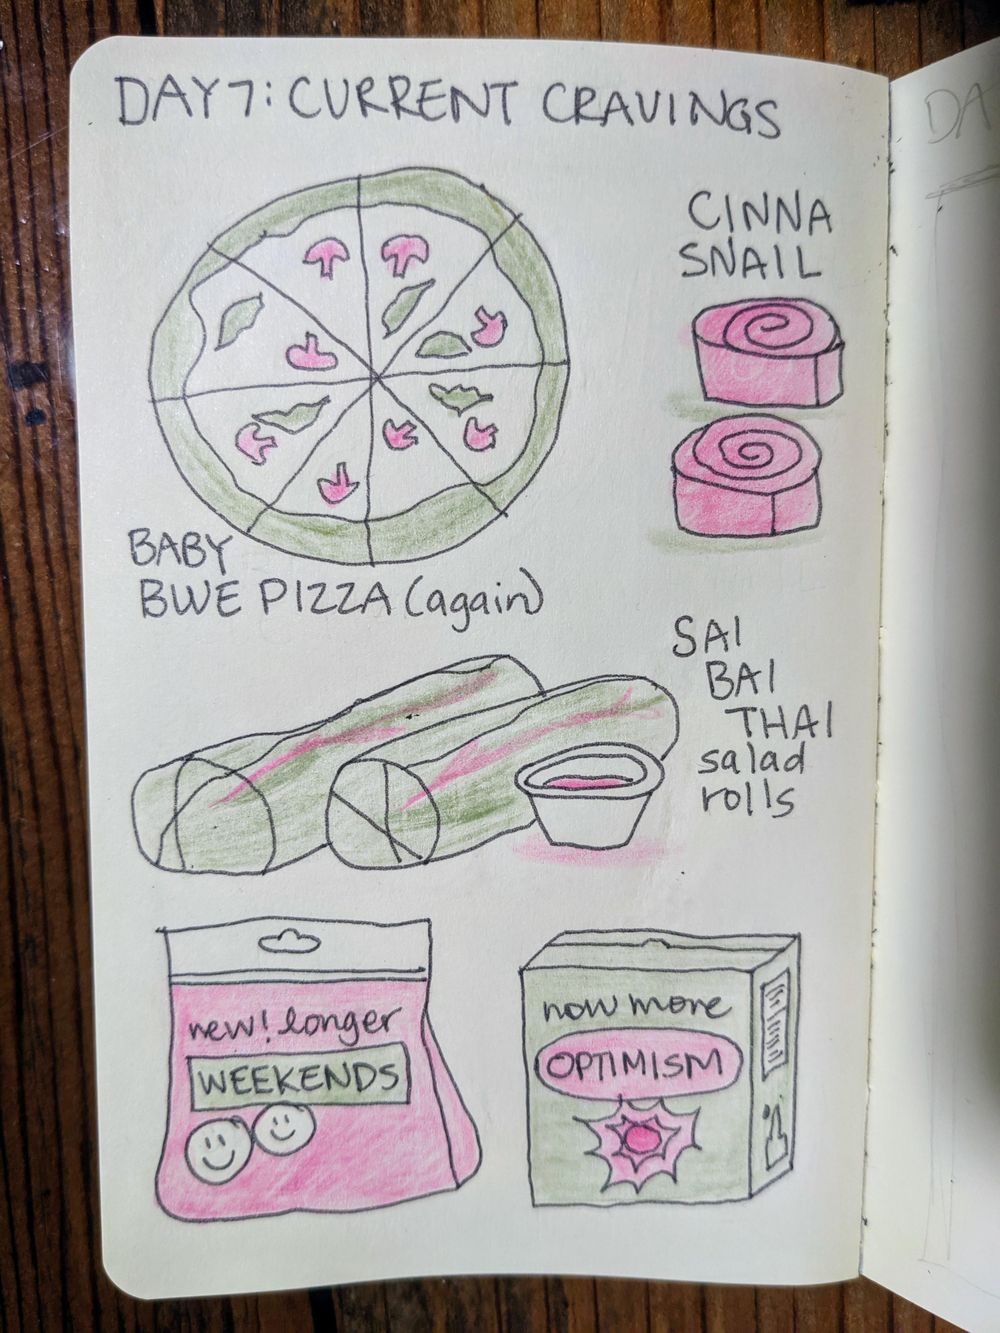 DAY 7: CURRENT CRAVINGS
CINNA
SNAIL
BABY
BLUE PIZZA (again)
SAI
BAI
THAI
salad
rolls
new! longer
WEEKENDS
now more
OPTIMISM
DA